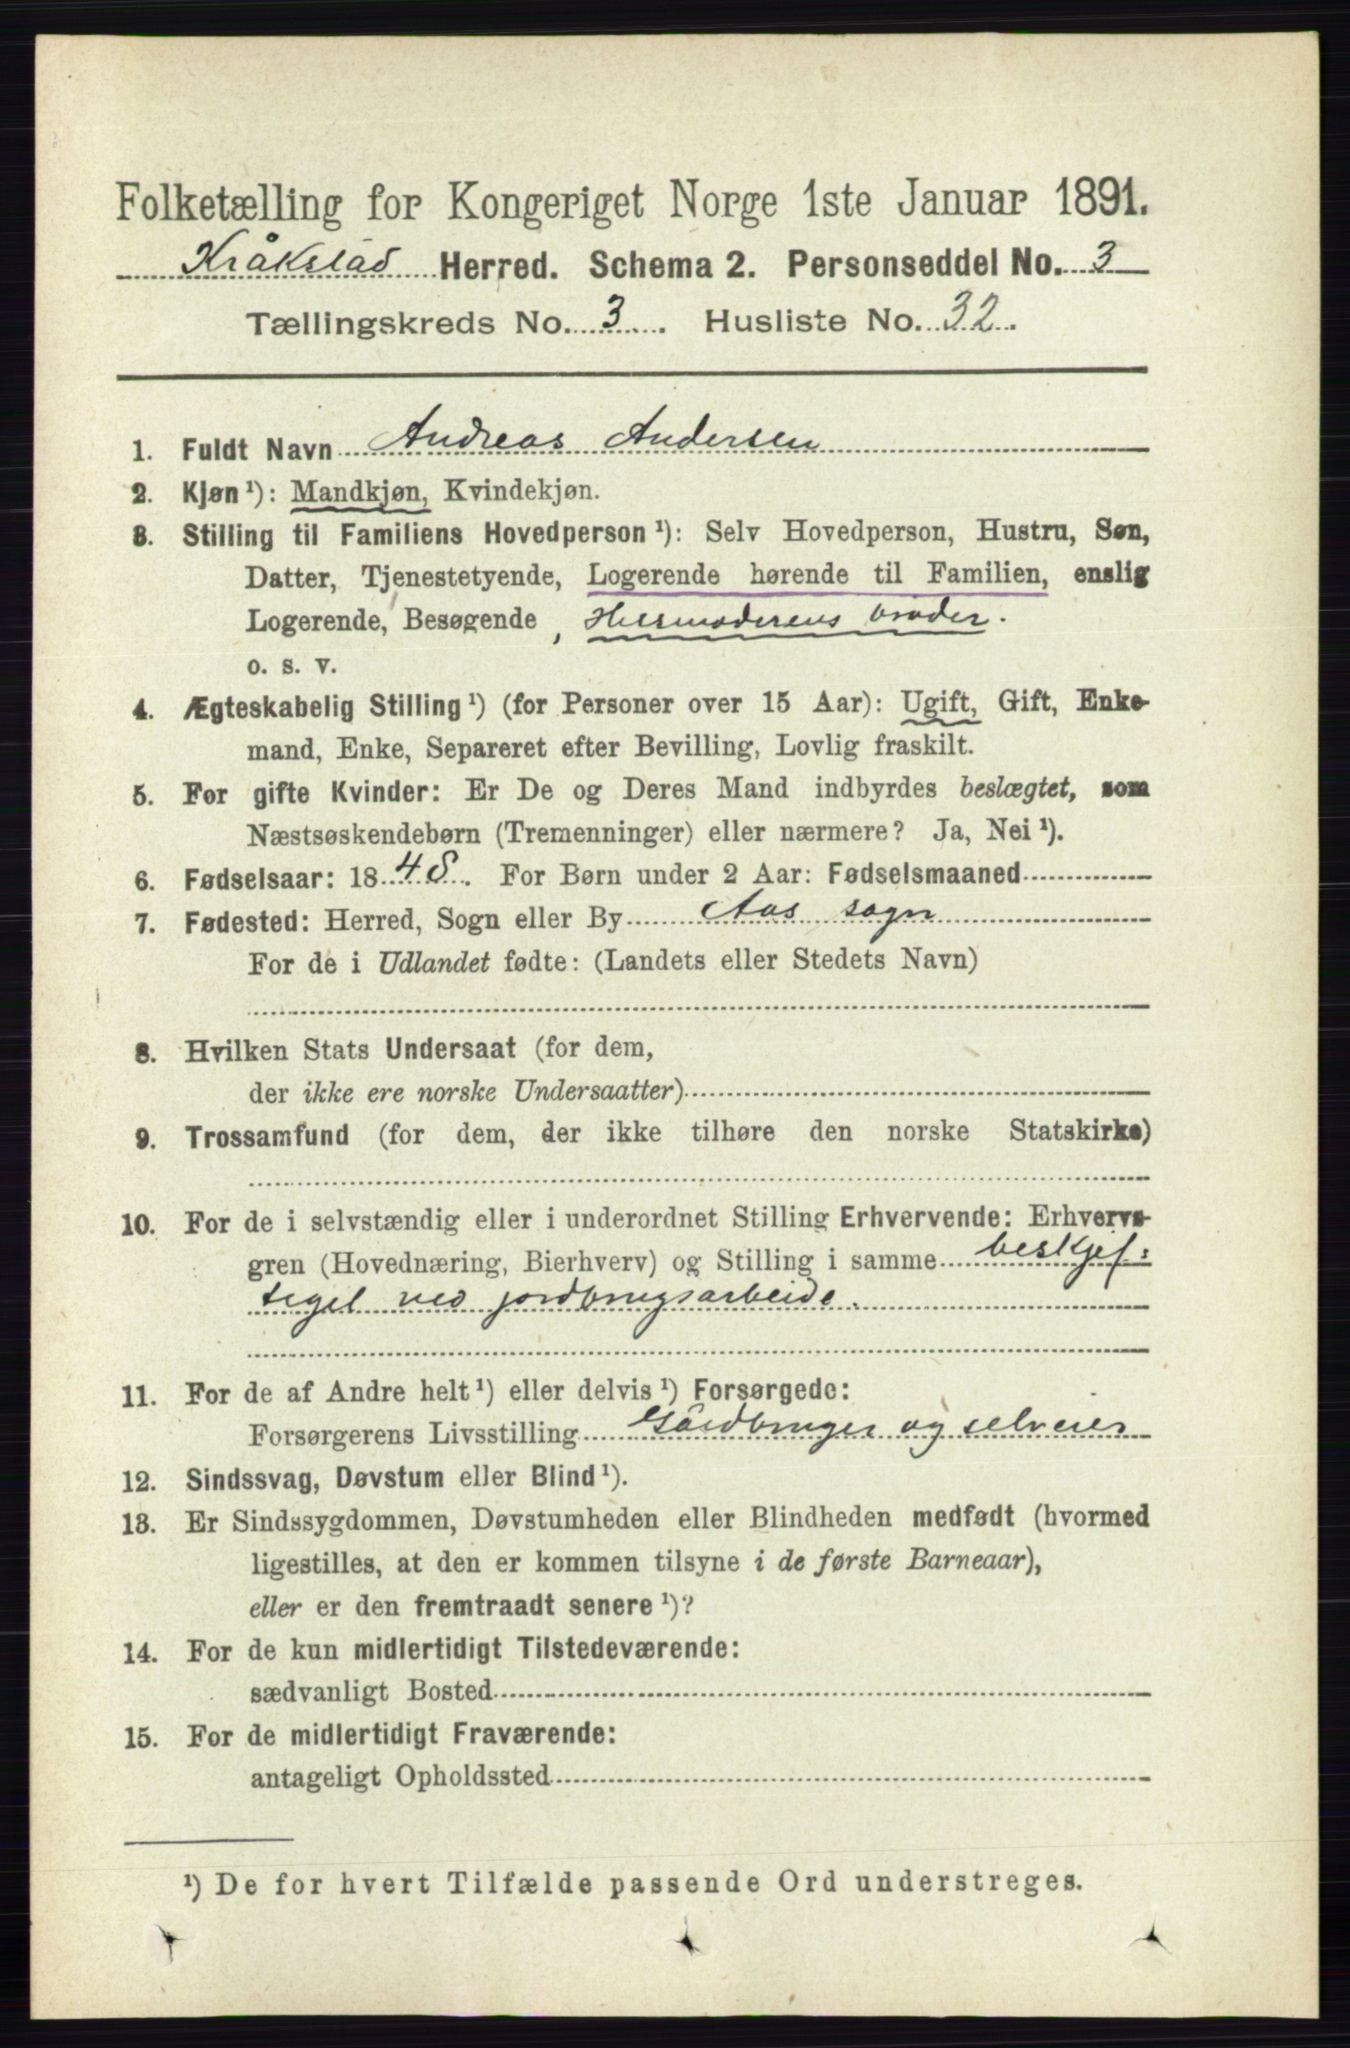 Folketælling for Kongeriget Norge 1ste Januar 1891.
Kråkstad Herred. Schema 2. Personseddel No. 3
Tællingskreds No. 3. Husliste No. 32.
1. Fuldt Navn Andreas Andersen
2. Kjøn ¹): Mandkjøn, Kvindekjøn.
3. Stilling til Familiens Hovedperson ¹): Selv Hovedperson, Hustru, Søn,
Datter, Tjenestetyende, Logerende hørende til Familien, enslig
Logerende, Besøgende, Husmoderens broder.
o. s. v.
4. Ægteskabelig Stilling ¹) (for Personer over 15 Aar): Ugift, Gift, Enke-
mand, Enke, Separeret efter Bevilling, Lovlig fraskilt.
5. For gifte Kvinder: Er De og Deres Mand indbyrdes beslægtet, som
Næstsøskendebørn (Tremenninger) eller nærmere? Ja, Nei ¹).
6. Fødselsaar: 1848. For Børn under 2 Aar: Fødselsmaaned
7. Fødested: Herred, Sogn eller By Aas sogn
For de i Udlandet fødte: (Landets eller Stedets Navn)
8. Hvilken Stats Undersaat (for dem,
der ikke ere norske Undersaatter)
9. Trossamfund (for dem, der ikke tilhøre den norske Statskirke)
10. For de i selvstændig eller i underordnet Stilling Erhvervende: Erhvervs-
gren (Hovednæring, Bierhverv) og Stilling i samme beskjef:
tiget ved jordbrugsarbeide.
11. For de af Andre helt ¹) eller delvis ¹) Forsørgede:
Forsørgerens Livsstilling Gårdbruger og selveier
12. Sindssvag, Døvstum eller Blind ¹).
13. Er Sindssygdommen, Døvstumheden eller Blindheden medfødt (hvormed
ligestilles, at den er kommen tilsyne i de første Barneaar),
eller er den fremtraadt senere ¹)?
14. For de kun midlertidigt Tilstedeværende:
sædvanligt Bosted
15. For de midlertidigt Fraværende:
antageligt Opholdssted
¹) De for hvert Tilfælde passende Ord understreges.